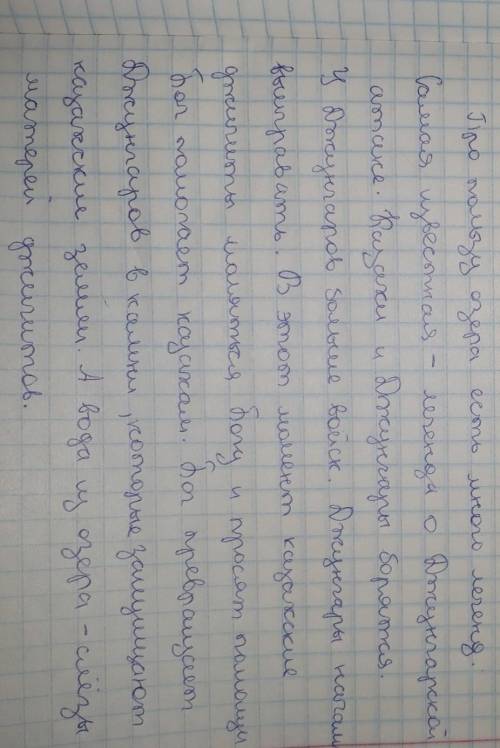 Про пользу озера есть много легенд.
Самая известная - легенда о Джунгарской
атаке. Казахи и Джунгары борятся.
У Джунгаров больше войск. Джунгары начали
выигравать. В этот момент казахские
джигиты моляться Богу и просят помощи
Бог помогает казахам. Бог превращает
Джунгаров в камни, которые защищают
казахские земли. А вода из озера - слёзы
матерей джигитов.